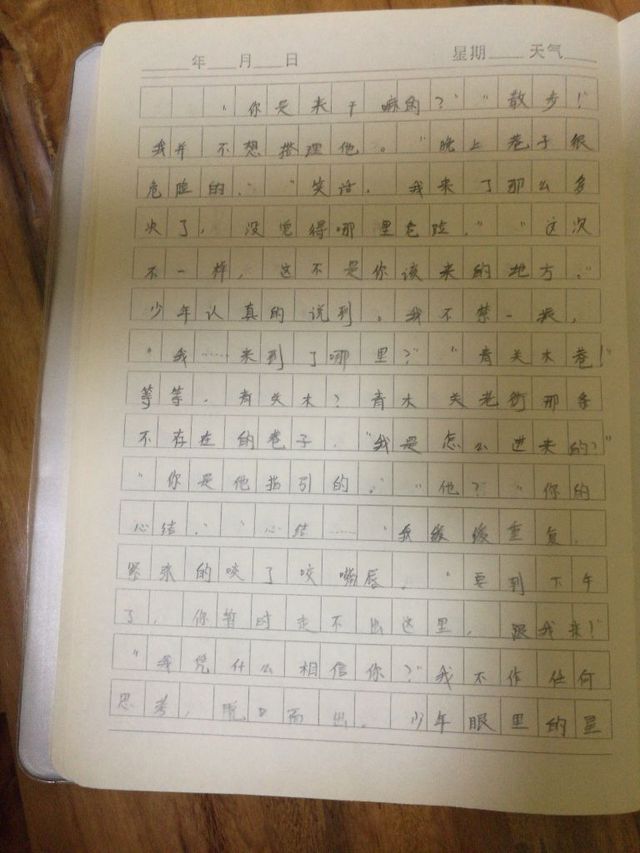 年 月 日 星期 天气
“你是来干嘛的？”“散步！”
我并不想搭理他。“晚上巷子很
危险的。”“笑话，我来了那么多
次了，没觉得哪里危险。”“这次
不一样，这不是你该来的地方。”
少年认真的说到。我不禁一愣，
“我……来到了哪里？”“青关木巷！”
等等，青关木？青木关老街那条
不存在的巷子。“我是怎么进来的？”
“你是他指引的。”“他？”“你的
心结。”“心结……”我缓缓重复，
紧张的咬了咬嘴唇。“要到下午
了，你暂时走不出这里，跟我来！”
“我凭什么相信你？”我不作任何
思考，脱口而出。少年眼里的星